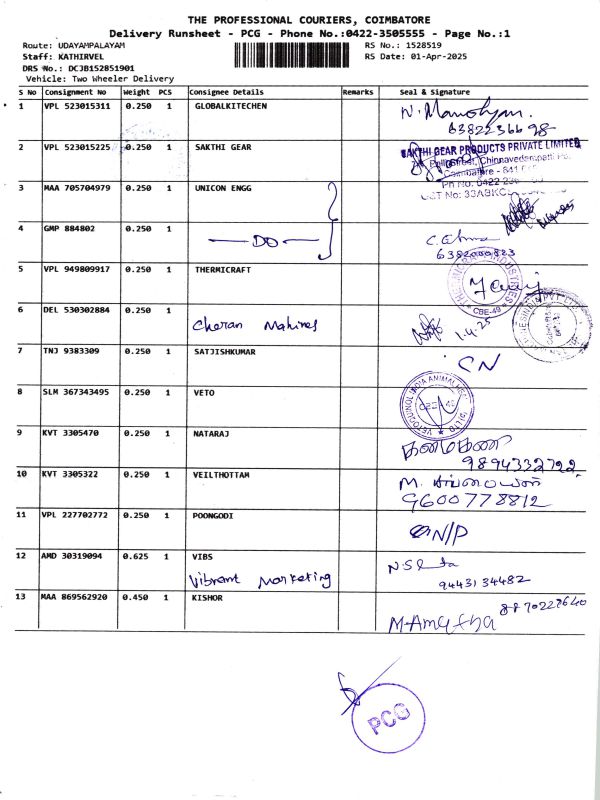 THE PROFESSIONAL COURIERS, COIMBATORE
Delivery Runsheet - PCG - Phone No.:0422-3505555 - Page No.:1
Route: UDAYAMPALAYAM
RS No.: 1528519
Staff: KATHIRVEL
RS Date: 01-Apr-2025
DRS No.: DCJB152851901
Vehicle: Two Wheeler Delivery
S No Consignment No Weight PCS Consignee Details Remarks Seal & Signature
1 VPL 523015311 0.250 1 GLOBALKITECHEN
6382236698
2 VPL 523015225 0.250 1 SAKTHI GEAR
SAKTHI GEAR PRODUCTS PRIVATE LIMITED
Street, Chinnavedampatti
Coimbatore - 641
Ph No: 0422
3 MAA 705704979 0.250 1 UNICON ENGG
4 GMP 884802 0.250 1
DO
6382000823
5 VPL 949809917 0.250 1 THERMICRAFT
CBE-49
6 DEL 530302884 0.250 1
Cheran Mahines
1.4.25
7 TNJ 9383309 0.250 1 SATJISHKUMAR
CN
8 SLM 367343495 0.250 1 VETO
VETOQUINOL INDIA ANIMAL
9 KVT 3305470 0.250 1 NATARAJ
9894332722
10 KVT 3305322 0.250 1 VEILTHOTTAM
9600778812
11 VPL 227702772 0.250 1 POONGODI
N/P
12 AMD 30319094 0.625 1 VIBS
Vibrant Marketing
9443134482
13 MAA 869562920 0.450 1 KISHOR
8870228640
PCG